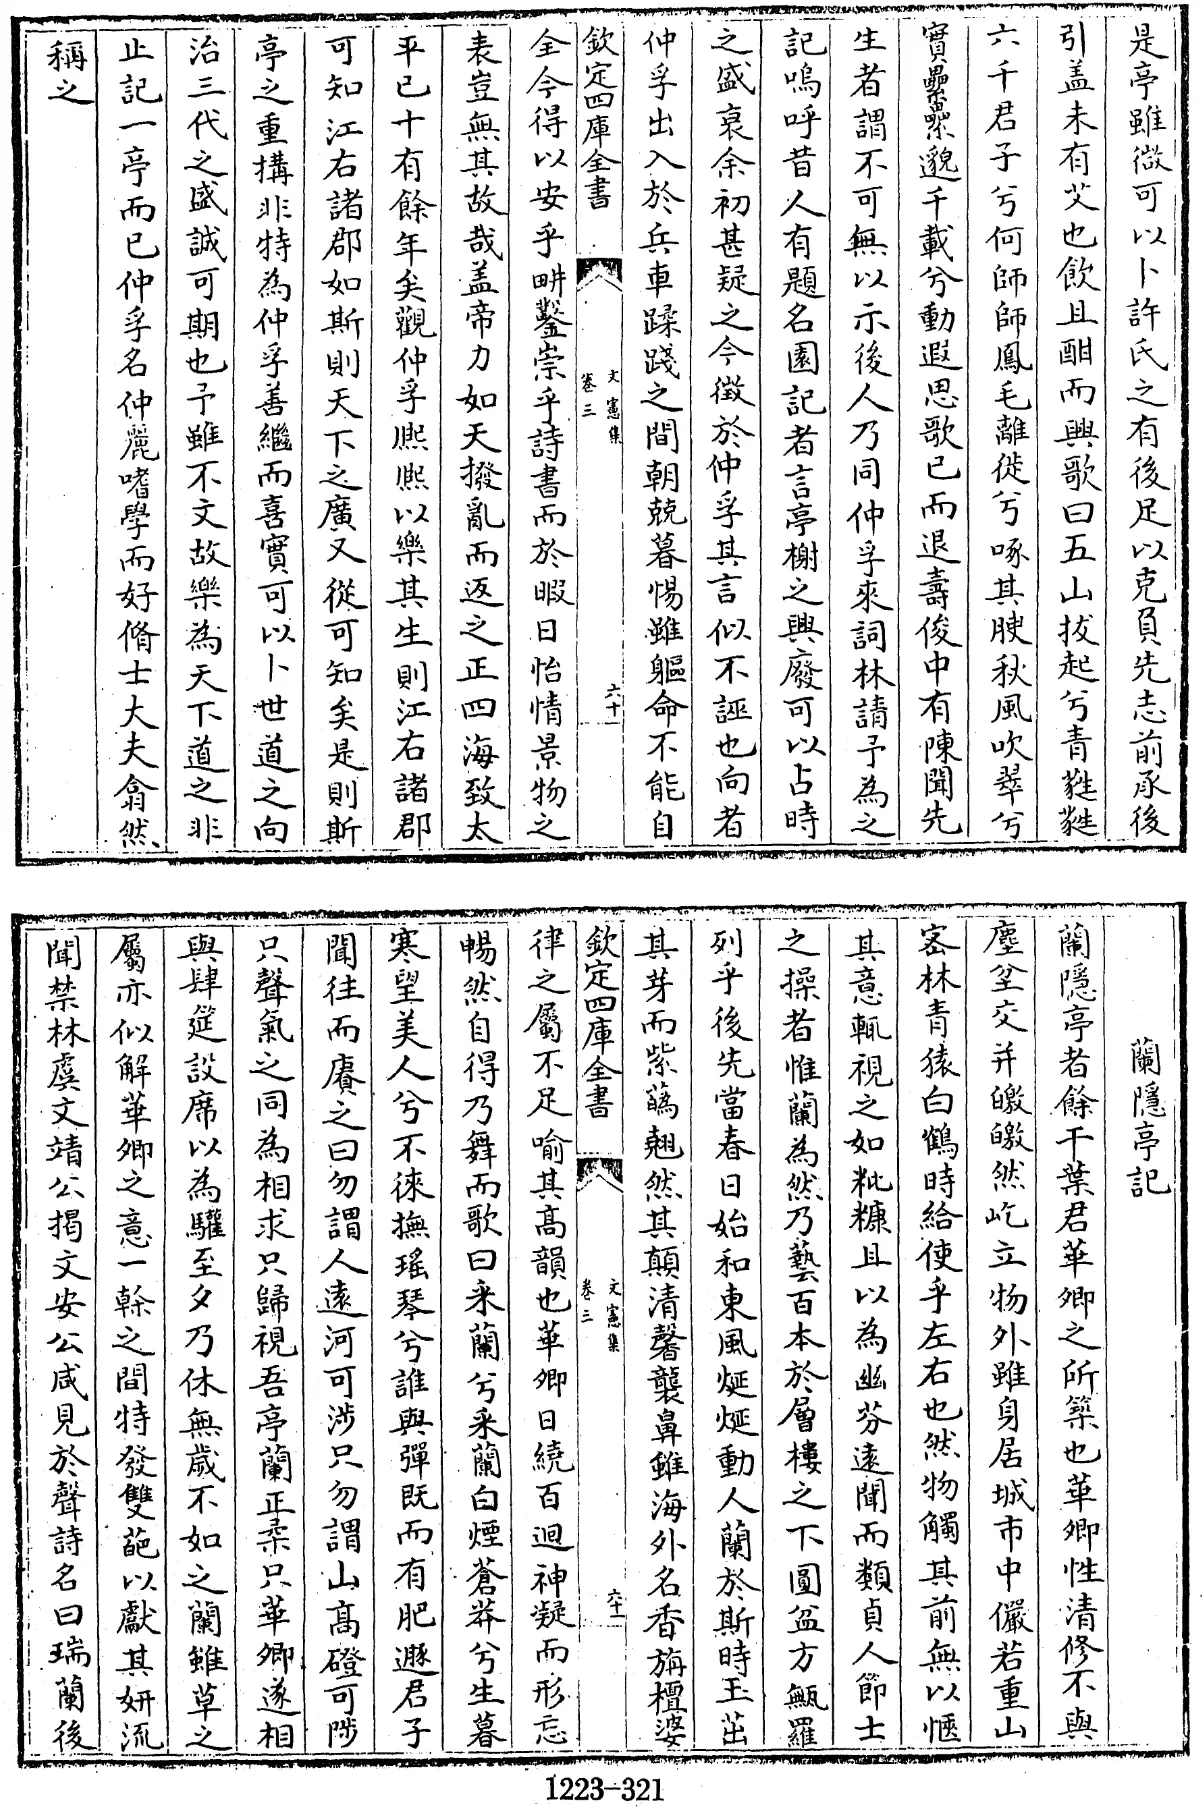 是亭雖微可以卜許氏之有後足以克負先志前承後
引盖未有艾也飲且酣而興歌曰五山拔起兮青蕤蕤
六千君子兮何師師鳳毛離徙兮啄其腴秋風吹翠兮
實纍纍邈千載兮動遐思歌已而退壽俊中有陳聞先
生者謂不可無以示後人乃同仲孚來詞林請予為之
記嗚呼昔人有題名園記者言亭榭之興廢可以占時
之盛衰余初甚疑之今徴於仲孚其言似不誣也向者
仲孚出入於兵車蹂踐之間朝兢暮惕雖軀命不能自
欽定四庫全書
文憲集
卷三
六十
全今得以安乎畊鑿崇乎詩書而於暇日怡情景物之
表豈無其故哉盖帝力如天撥亂而返之正四海致太
平已十有餘年矣觀仲孚熈熈以樂其生則江右諸郡
可知江右諸郡如斯則天下之廣又從可知矣是則斯
亭之重搆非特為仲孚善繼而喜實可以卜世道之向
治三代之盛誠可期也予雖不文故樂為天下道之非
止記一亭而已仲孚名仲麗嗜學而好脩士大夫翕然
稱之
蘭隱亭記
蘭隱亭者餘干葉君華卿之所築也華卿性清修不與
塵坌交并皦皦然屹立物外雖身居城市中儼若重山
宻林青猿白鶴時給使乎左右也然物觸其前無以愜
其意輒視之如粃糠且以為幽芬遠聞而類貞人節士
之操者惟蘭為然乃藝百本於層樓之下圓盆方甒羅
列乎後先當春日始和東風烻烻動人蘭於斯時玉茁
其芽而紫蘤翹然其顛清馨襲鼻雖海外名香旃檀婆
欽定四庫全書
文憲集
卷三
六十一
律之屬不足喻其高韻也華卿日繞百迴神凝而形忘
暢然自得乃舞而歌曰采蘭兮采蘭白煙蒼莽兮生暮
寒望美人兮不徠撫瑤琴兮誰與彈既而有肥遯君子
聞往而賡之曰勿謂人遠河可涉只勿謂山高磴可陟
只聲氣之同為相求只歸視吾亭蘭正柔只華卿遂相
與肆筵設席以為驩至夕乃休無歳不如之蘭雖草之
屬亦似解華卿之意一榦之間特發雙葩以獻其妍流
聞禁林虞文靖公揭文安公咸見於聲詩名曰瑞蘭後
1223-321